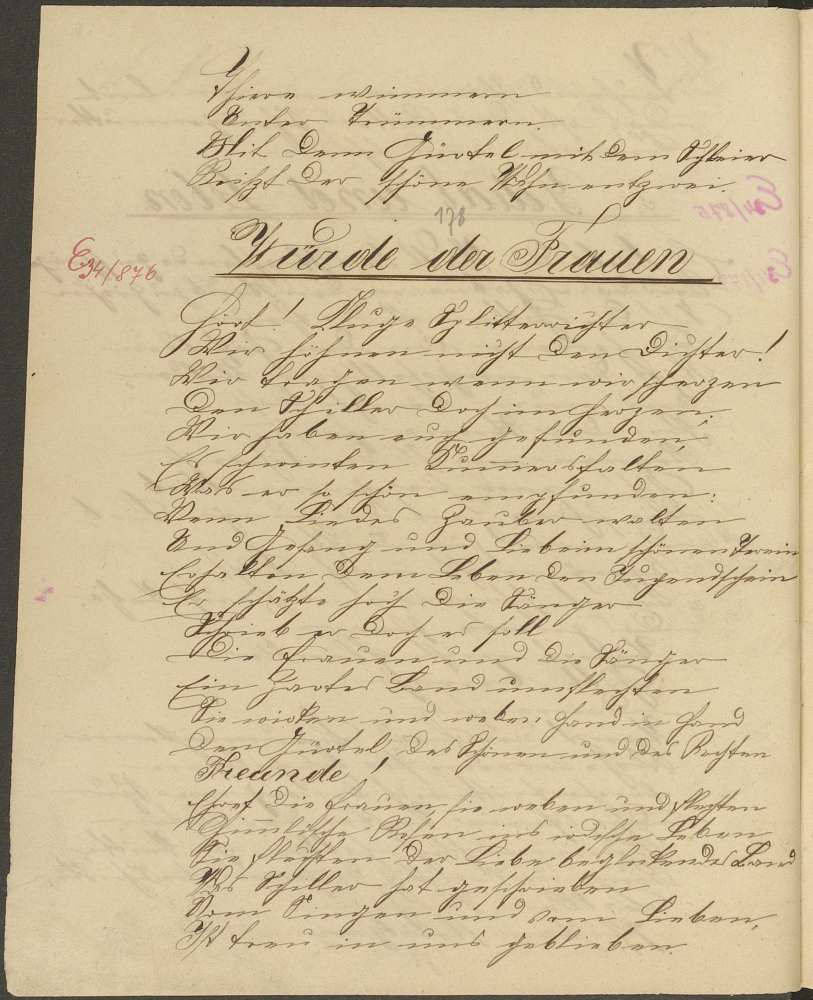 Thiere wimmern
Unter Trümmern.
Mit dem Gürtel mit dem Schleier
Reißt der schöne Wahn entzwei.
178
Würde der Frauen
E34/876
Hört! Kluge Splitterrichter
Wir höhnen nicht den Dichter!
Wir tragen wenn wir scherzen
Den Schiller doch im Herzen,
Wir haben auch gefunden,
Es schwinden Kummersfalten
Was er so schön empfunden:
Wenn Liedes Zauber walten
Und Gesang und Liebe im schönen Verein
Erhalten dem Leben den Jugendschein
Er schätzte hoch die Sänger
Schrieb er doch es soll
Die Frauen und die Sänger
Ein zartes Band umflechten
Sie wirken und weben Hand in Hand
Den Gürtel des Schönen und des Rechten
Freunde!
Ehret die Frauen sie weben und flechten
Himmlische Rosen ins irdische Leben
Sie flechten der Liebe beglückendes Band
Was Schiller hat geschrieben
Vom Singen und vom Lieben,
Ist treu in uns geblieben.